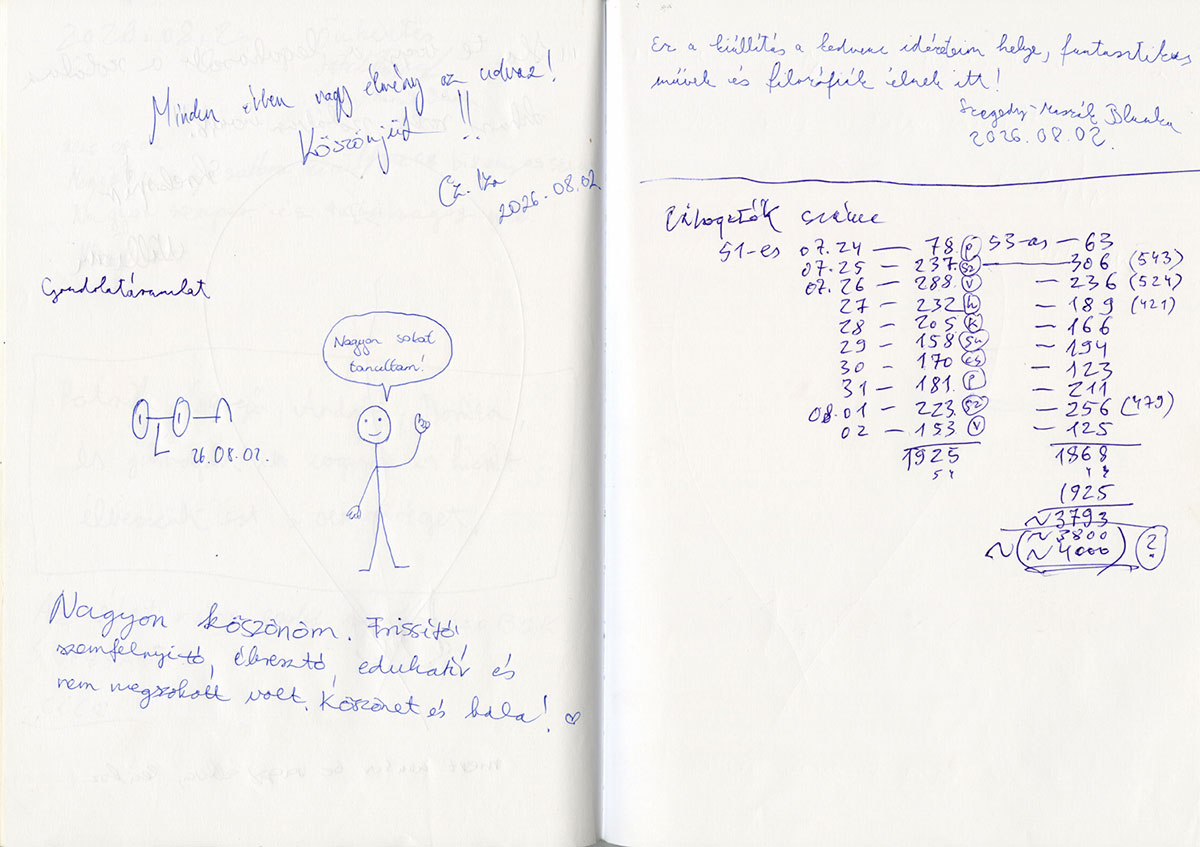 Minden évben nagy élmény az udvar!
Köszönjük!!
Cz. Iza
2026.08.02.
Gondolatáramlat
Nagyon sokat
tanultam!
26.08.02.
Nagyon köszönöm. Frissítő,
szemfelnyitó, ébresztő, edukatív és
nem megszokott volt. Köszönet és hála! ♡
Ez a kiállítás a kedvenc idézeteim helye, fantasztikus
művek és filozófiák élnek itt!
Szegedy-Maszák Blanka
2026.08.02.
Látogatók száma
S1-es 07.24 — 78 (p) S3-as — 63
07.25 — 237 (sz) — 306 (543)
07.26 — 288 (v) — 236 (524)
27 — 232 (h) — 189 (421)
28 — 205 (k) — 166
29 — 158 (sze) — 194
30 — 170 (cs) — 123
31 — 181 (p) — 211
08.01 — 223 (sz) — 256 (479)
02 — 153 (v) — 125
1925 1868
1925
~3793
~3800
~(~4000) (?)